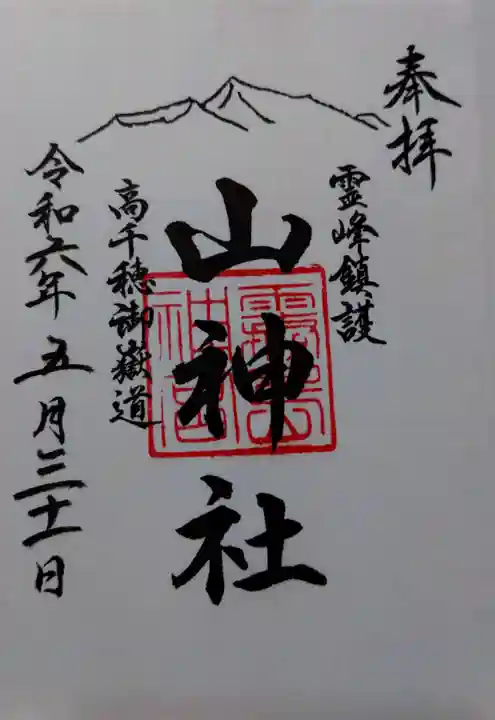 奉拝
霊峰鎮護
山神社
高千穂御嶽道
令和六年五月三十一日